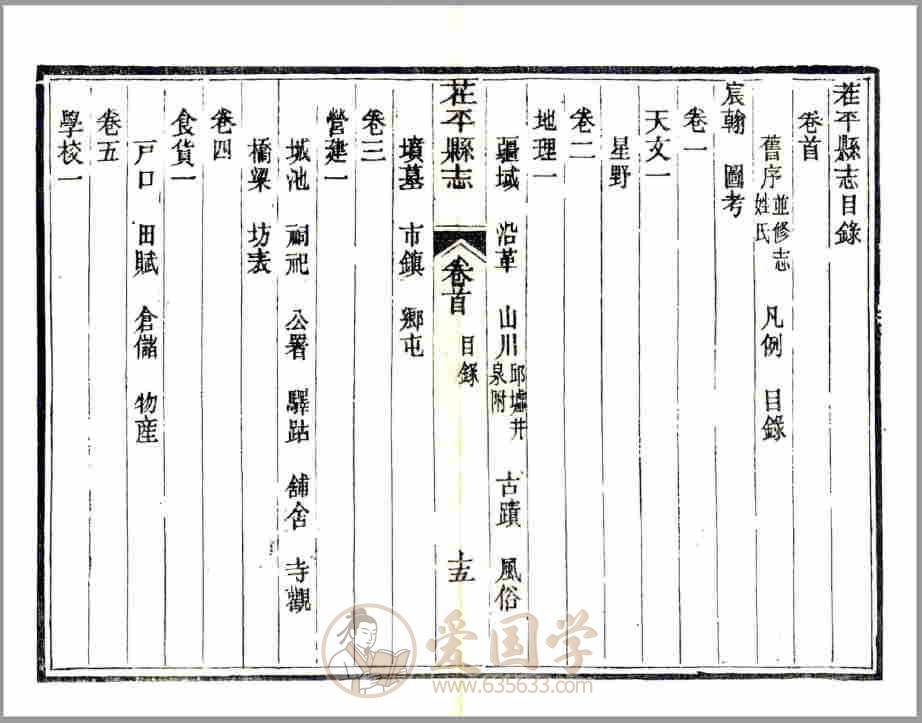 茌平縣志目錄
卷首
舊序並修志姓氏 凡例 目錄
宸翰 圖考
卷一
天文一
星野
卷二
地理一
疆域 沿革 山川邱墟井泉附 古蹟 風俗
茌平縣志 卷首 目錄 十五
墳墓 市鎮 鄉屯
卷三
營建一
城池 祠祀 公署 驛站 舖舍 寺觀
橋梁 坊表
卷四
食貨一
戸口 田賦 倉儲 物産
卷五
學校一
爱国学
www.635633.com